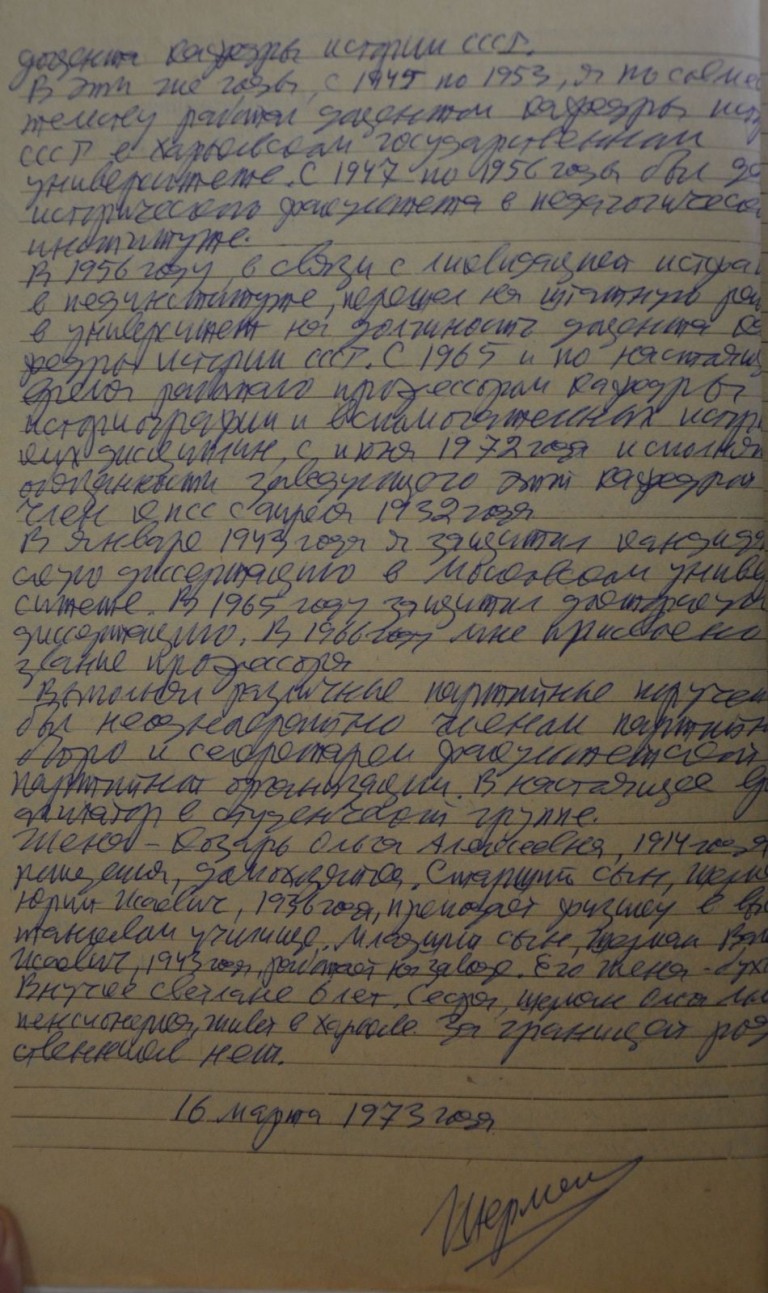 доцента кафедры истории СССР.
В эти же годы, с 1945 по 1953, я по совме
тельству работал доцентом кафедры ист
СССР в Харьковском государственном
университете. С 1947 по 1956 годы был де
исторического факультета в педагогическом
институте.
В 1956 году, в связи с ликвидацией истфа
в пединституте, перешел на штатную раб
в университет на должность доцента ка
федры истории СССР. С 1965 и по настоящ
время работаю профессором кафедры
историографии и вспомогательных истори
ких дисциплин, с июня 1972 года исполня
обязанности заведующего этой кафедрой
Член КПСС с апреля 1932 года
В январе 1943 года я защитил кандида
скую диссертацию в Московском универ
ситете. В 1965 году защитил докторскую
диссертацию. В 1966 году мне присвоено
звание профессора
Выполнял различные партийные поручен
был неоднократно членом партийн
бюро и секретарем факультетской
партийной организации. В настоящее вр
агитатор в студенческой группе.
Жена - Козарь Ольга Алексеевна, 1914 года
рождения, домохозяйка. Старший сын, Шерма
Юрий Исаевич, 1936 года, преподает физику в
танковом училище. Младший сын, Шерман
Исаевич, 1943 года, работает на заводе. Его жена - бух
Внучке Светлане 6 лет. Сестра, Шерман
пенсионерка, живет в Харькове. За границей род
ственников нет.
16 марта 1973 года
Шерман